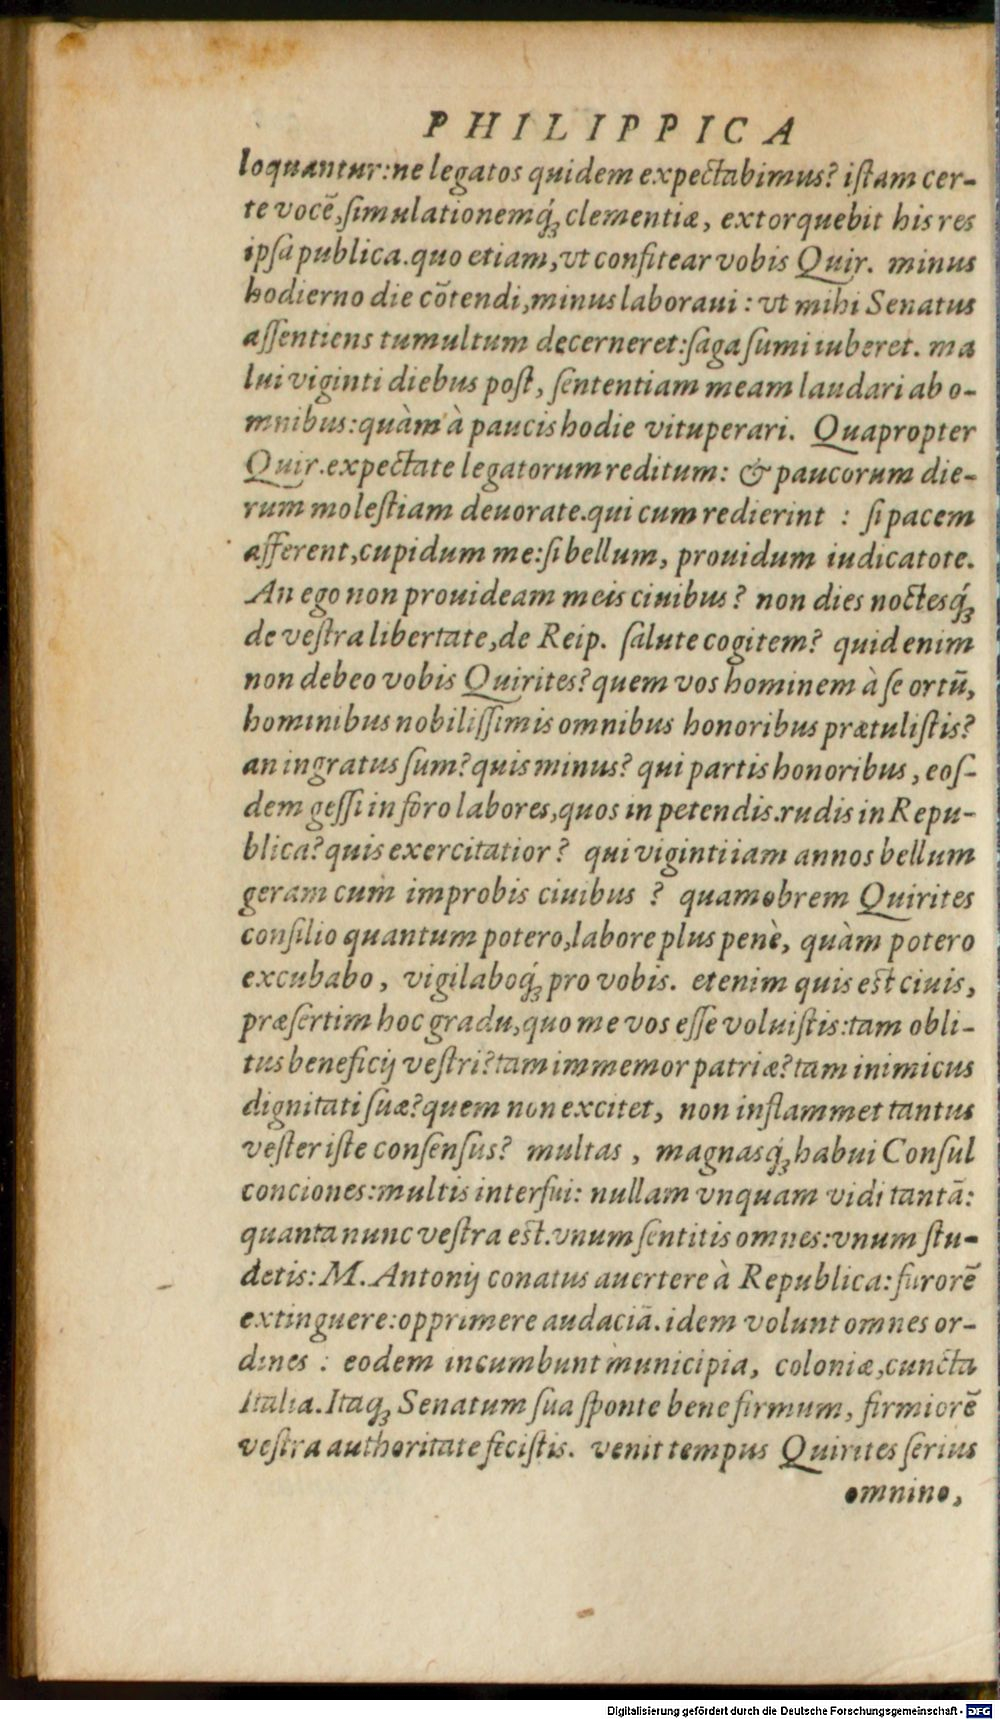 PHILIPPICA
loquantur:ne legatos quidem expectabimus? iſtam cer-
te vocē,ſimulationemq́; clementiæ, extorquebit his res
ipſa publica.quo etiam,vt confitear vobis Quir. minus
hodierno die cōtendi,minus laboraui: vt mihi Senatus
aſſentiens tumultum decerneret:ſaga ſumi iuberet. ma
lui viginti diebus poſt, ſententiam meam laudari ab o-
mnibus:quàm à paucis hodie vituperari. Quapropter
Quir.expectate legatorum reditum: & paucorum die-
rum moleſtiam deuorate.qui cum redierint : ſi pacem
afferent,cupidum me:ſi bellum, prouidum iudicatote.
An ego non prouideam meis ciuibus? non dies noctesq́;
de veſtra libertate,de Reip. ſalute cogitem? quid enim
non debeo vobis Quirites? quem vos hominem à ſe ortū,
hominibus nobiliſſimis omnibus honoribus prætuliſtis?
an ingratus ſum? quis minus? qui partis honoribus, eoſ-
dem geſſi in foro labores,quos in petendis.rudis in Repu-
blica? quis exercitatior? qui viginti iam annos bellum
geram cum improbis ciuibus ? quamobrem Quirites
conſilio quantum potero,labore plus penè, quàm potero
excubabo, vigilaboq́; pro vobis. etenim quis est ciuis,
præſertim hoc gradu,quo me vos eſſe voluiſtis:tam obli-
tus beneficij veſtri? tam immemor patriæ? tam inimicus
dignitati ſuæ? quem non excitet, non inflammet tantus
veſter iſte conſenſus? multas, magnasq́; habui Conſul
conciones:multis interfui: nullam vnquam vidi tantā:
quanta nunc veſtra est.vnum ſentitis omnes:vnum ſtu-
detis: M. Antonij conatus auertere à Republica: furorē
extinguere:opprimere audaciā.idem volunt omnes or-
dines : eodem incumbunt municipia, coloniæ,cuncta
Italia.Itaq; Senatum ſua ſponte bene firmum, firmiorē
veſtra authoritate feciſtis. venit tempus Quirites ſerius
omnino,
Digitalisierung gefördert durch die Deutsche Forschungsgemeinschaft - DFG